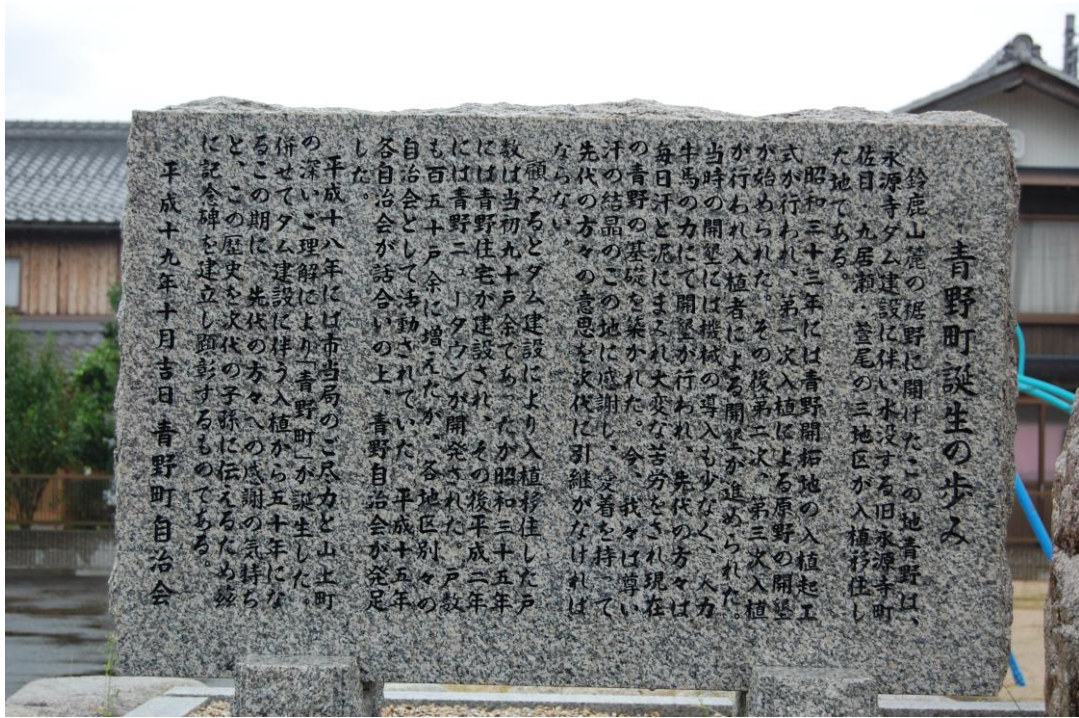 青野町誕生の歩み
鈴鹿山麓の裾野に開けたこの地青野は、
永源寺ダム建設に伴い水没する旧永源寺町
佐目・九居瀬・萱尾の三地区が入植移住し
た地である。
昭和三十三年には青野開拓地の入植起工
式が行われ、第一次入植による原野の開墾
が始められた。その後第二次、第三次入植
が行われ入植者による開墾が進められた。
当時の開墾には機械の導入も少なく、人力
牛馬の力にて開墾が行われ、先代の方々は
毎日汗と泥にまみれ大変な苦労をされ現在
の青野の基礎を築かれた。今、我々は尊い
汗の結晶のこの地に感謝し、愛着を持って
先代の方々の意思を次代に引継がなければ
ならない。
顧みるとダム建設により入植移住した戸
数は当初九十戸余であったが昭和三十五年
には青野住宅が建設され、その後平成二年
には青野ニュータウンが開発された。戸数
も百五十戸余に増えたが、各地区別々の
自治会として活動されていた。平成十五年
各自治会が話合いの上、青野自治会が発足
した。
平成十八年には市当局のご尽力と山上町
の深いご理解により「青野町」が誕生した。
併せてダム建設に伴う入植から五十年にな
るこの期に、先代の方々への感謝の気持ち
と、この歴史を次代の子孫に伝えるため茲
に記念碑を建立し顕彰するものである。
平成十九年十月吉日 青野町自治会